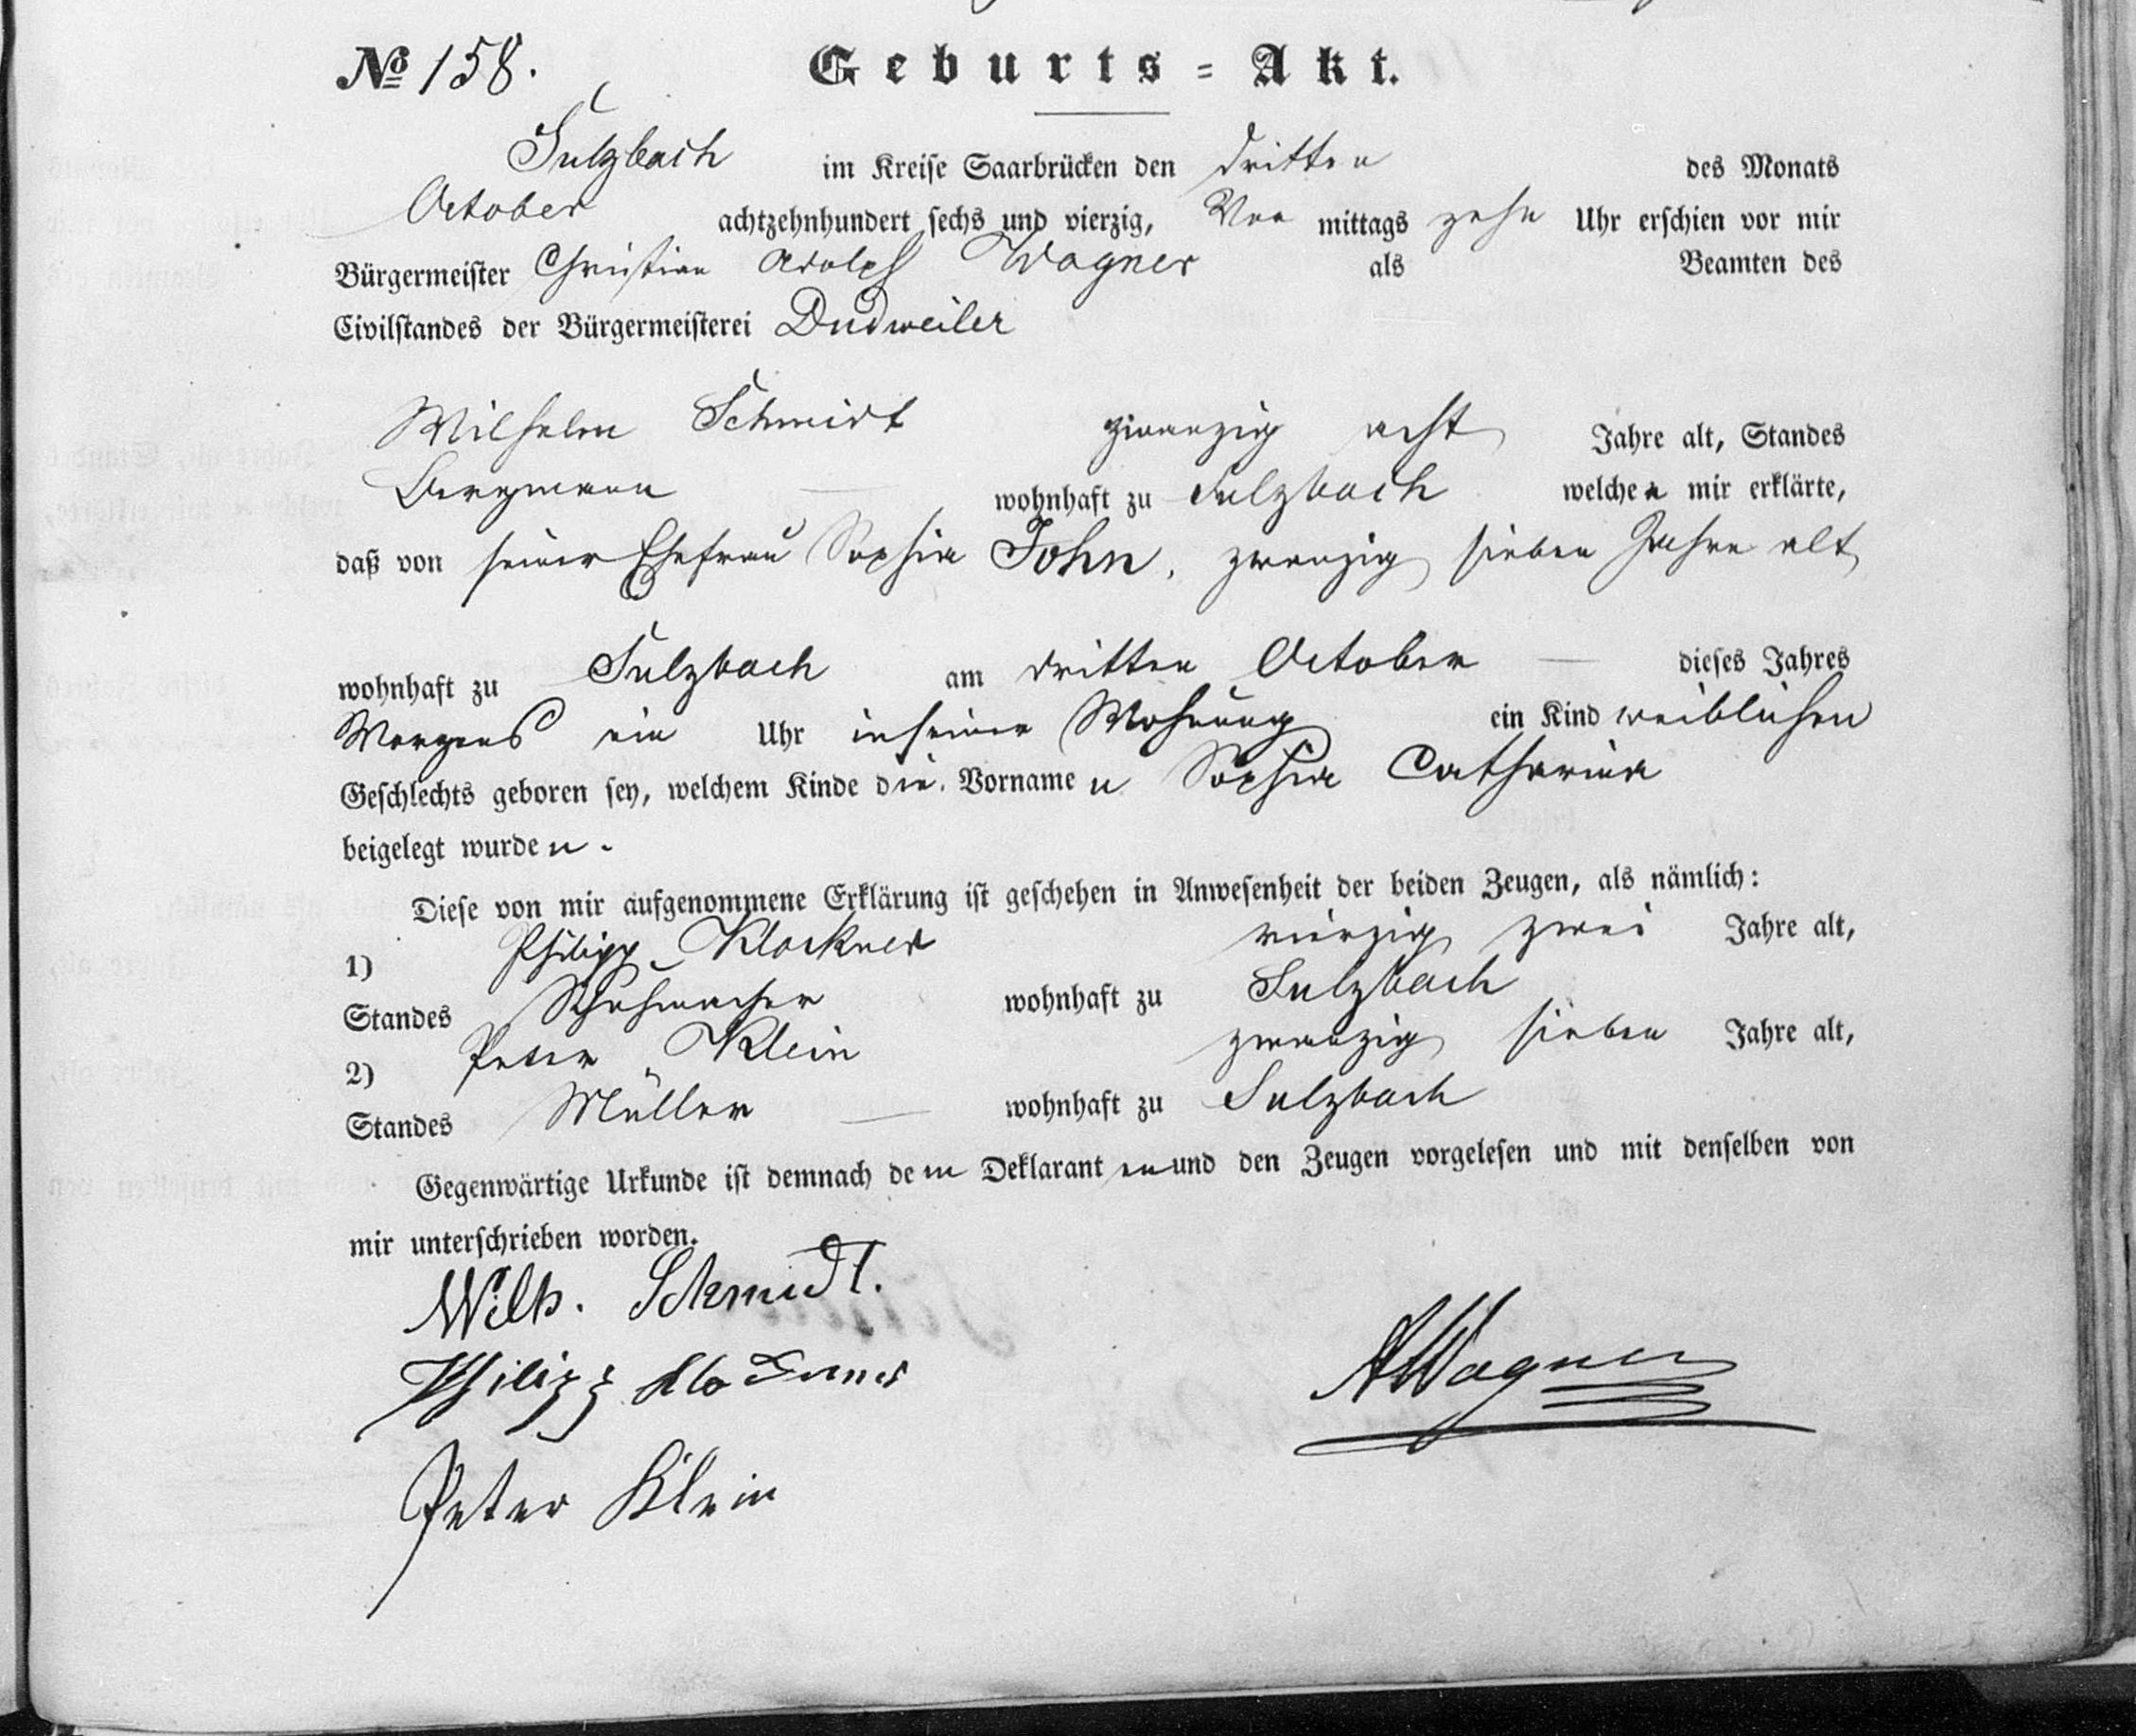 No 158. Geburts-Akt.
Sulzbach im Kreise Saarbrücken den dritten des Monats
October achtzehnhundert sechs und vierzig, Vor mittags zehn Uhr erschien vor mir
Bürgermeister Christian Adolph Wagner als Beamten des
Civilstandes der Bürgermeisterei Dudweiler
Wilhelm Schmidt zwanzig acht Jahre alt, Standes
Bergmann wohnhaft zu Sulzbach welcher mir erklärte,
daß von seiner Ehefrau Sophia John, zwanzig sieben Jahre alt
wohnhaft zu Sulzbach am dritten October dieses Jahres
Morgens ein Uhr in seiner Wohnung ein Kind weiblichen
Geschlechts geboren sey, welchem Kinde die Vornamen Sophia Catharina
beigelegt wurden.
Diese von mir aufgenommene Erklärung ist geschehen in Anwesenheit der beiden Zeugen, als nämlich:
1) Philipp Klockner vierzig zwei Jahre alt,
Standes Schuhmacher wohnhaft zu Sulzbach
2) Peter Klein zwanzig sieben Jahre alt,
Standes Müller wohnhaft zu Sulzbach
Gegenwärtige Urkunde ist demnach dem Deklaranten und den Zeugen vorgelesen und mit denselben von
mir unterschrieben worden.
Wilh. Schmidt.
Philipp Klockner
AWagner
Peter Klein